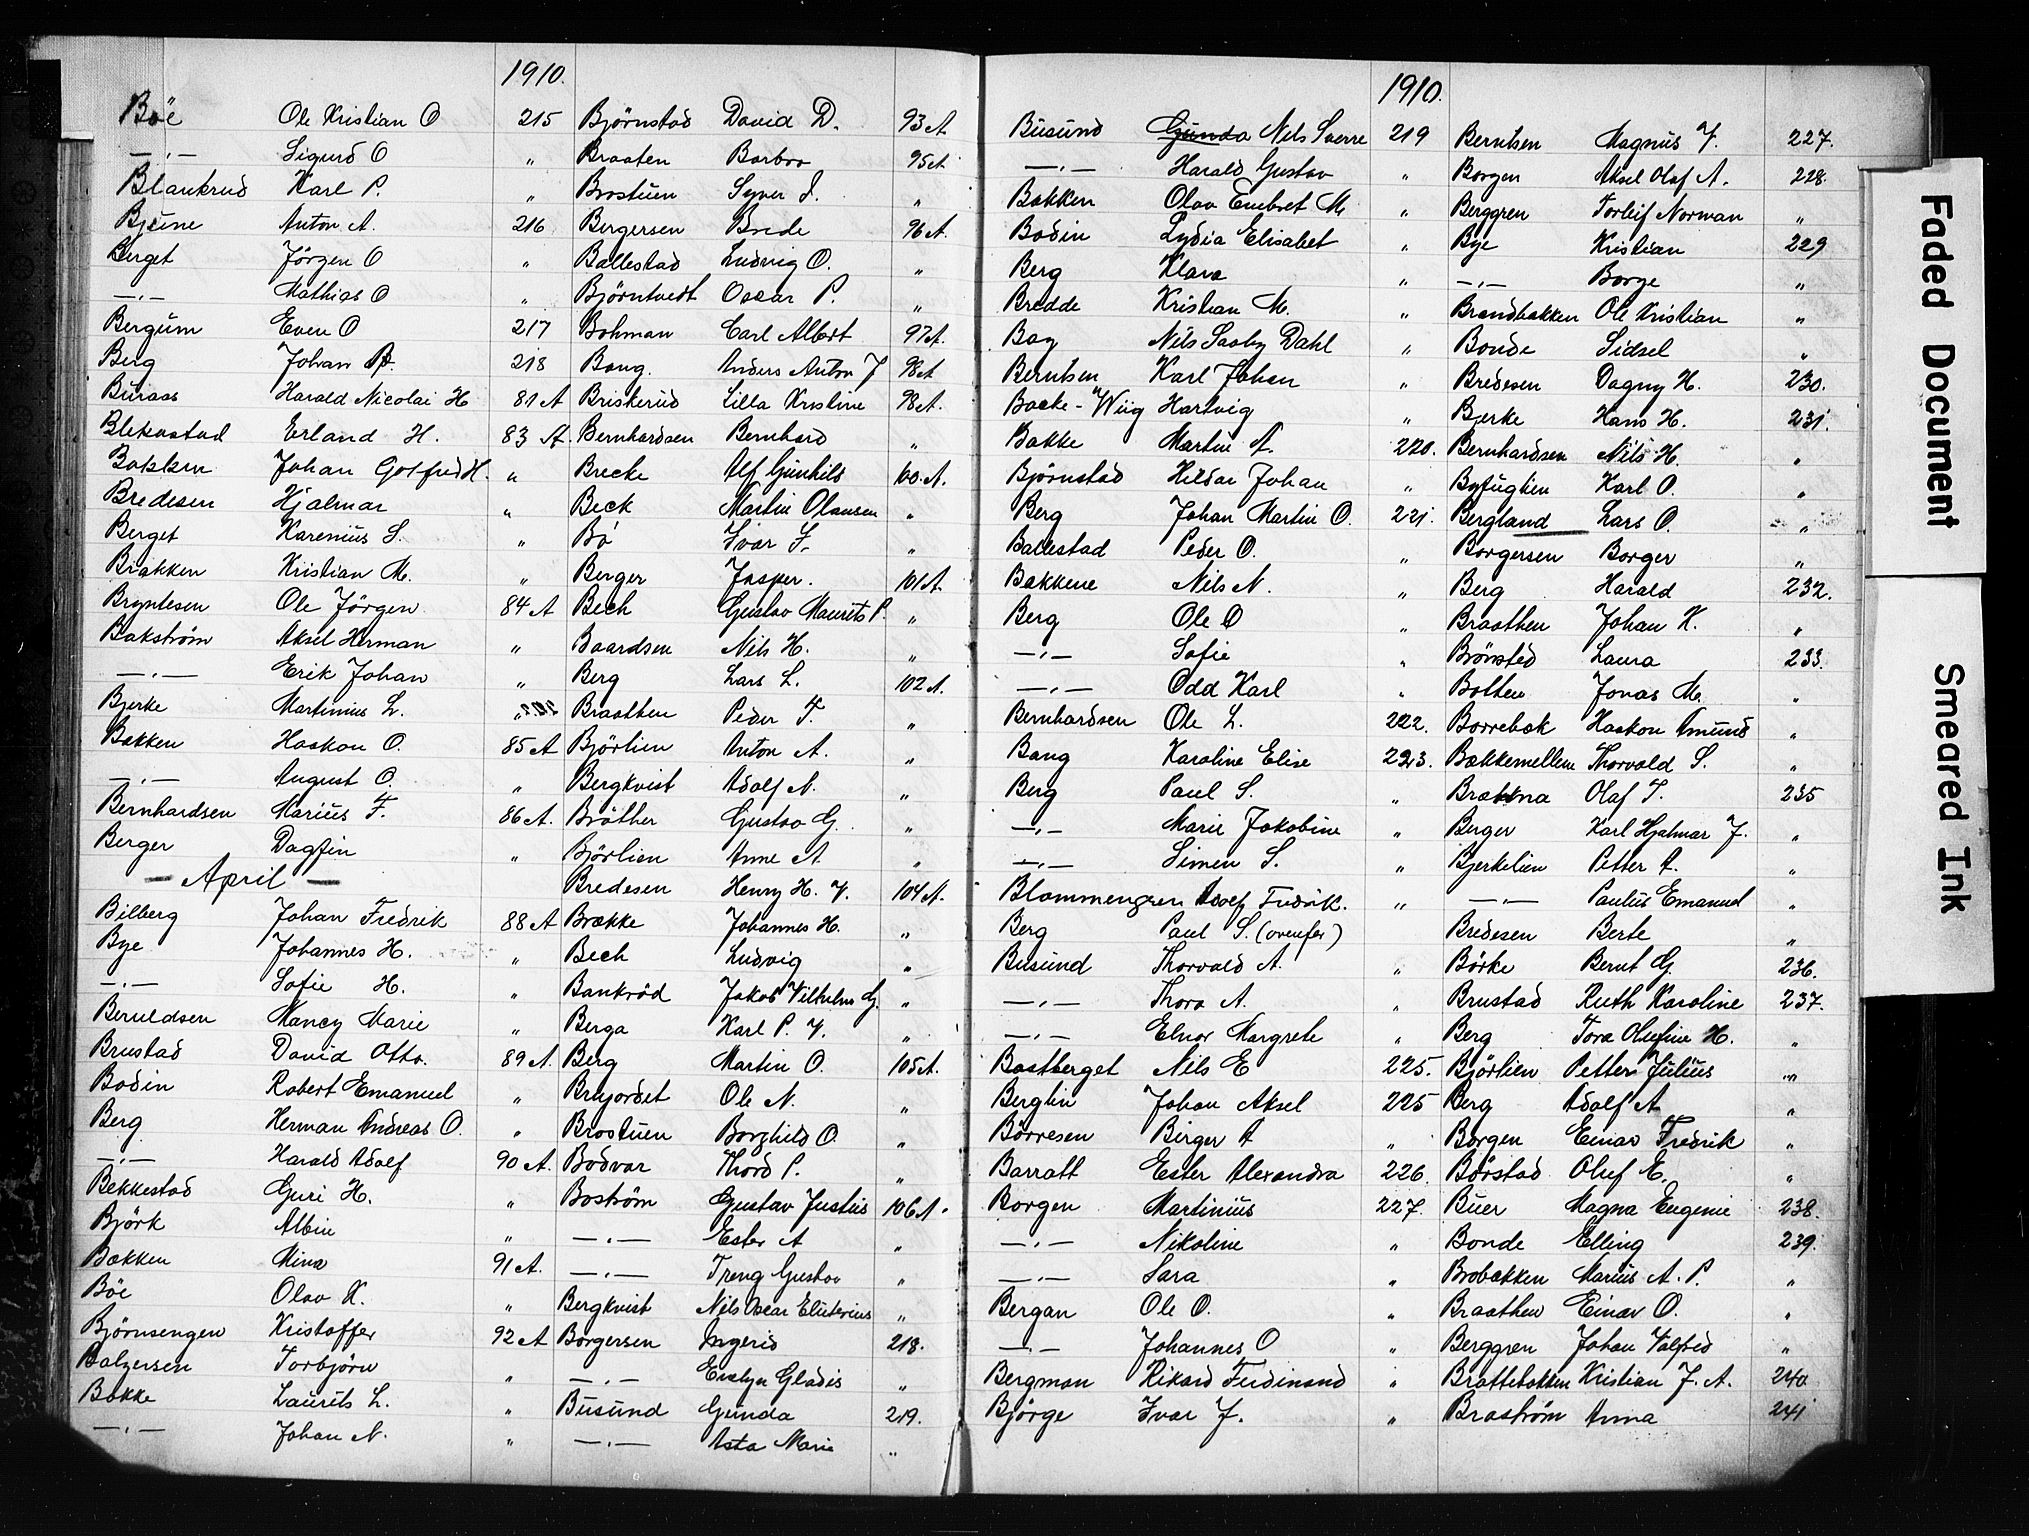 1910.
Böe Ole Kristian O 215
—„— Sigurd O „
Blankrud Karl P. „
Bjeine Anton A. 216
Berget Jörgen O „
—„— Mathias O „
Bergum Even O 217
Berg Johan A. 218
Buraas Harald Nicolai H 81 A
Blekastad Erland H. 83 A.
Bakken Johan Gotfred H. „
Bredesen Hjalmar „
Berget Karenius S. „
Brakken Kristian M. „
Bryntesen Ole Jörgen 84 A
Bakström Aksel Herman „
—„— Erik Johan „
Bjerke Martinius L. „
Bakken Haakon O. 85 A
—„— August O. „
Bernhardsen Marius F. 86 A.
Berger Dagfin „
— April —
Bilberg Johan Fredrik 88 A
Bye Johannes H. „
—„— Sofie H. „
Beruldsen Nancy Marie „
Brustad David Otto. 89 A.
Bodin Robert Emanuel „
Berg Herman Andreas O. „
—„— Harald Adolf 90 A.
Bekkestad Guri H. „
Björk Albin „
Bakken Mina 91 A.
Böe Olav K. „
Björnsengen Kristoffer 92 A
Balgersen Torbjörn „
Bakke Laurits L. „
—„— Johan N. „
Björnstad David D. 93 A
Braaten Barbro 95 A
Brostuen Syver I. „
Bergersen Brede 96 A.
Ballestad Ludvig O. „
Björntvedt Oscar P. „
Bohman Carl Albert 97 A.
Bang. Anders Anton J 98 A
Briskerud Lilla Kristine 98 A.
Bernhardsen Bernhard „
Brecke Alf Gunhild 100 A.
Beck Martin Olausen „
Bö Ivar I. „
Berger Jasper. 101 A.
Bech Gustav Maurits P. „
Baardsen Nils H. „
Berg Lars L. 102 A.
Braathen Peder T. „
Björlien Anton A. „
Bergkvist Adolf N. „
Bråther Gustav G. „
Björlien Anne A „
Bredesen Henry H. J. 104 A.
Brække Johannes H. „
Bech Ludvig „
Bankröd Jakob Vilhelm G. „
Berga Karl P. J. „
Berg Martin O. 105 A.
Brejordet Ole N. „
Brostuen Borghild O. „
Bodvar Thord P. „
Boström Gustav Justus 106 A.
—„— Ester A „
—„— Treng Gustav „
Bergkvist Nils Oscar Eliuterius „
Borgersen Ingerid 218.
—„— Evelyn Gladis „
Busund Gunda 219.
—„— Asta Marie „
1910.
Busund Gunda Nils Sverre 219
—„— Harald Gustav „
Bakken Olav Embret M. „
Bodin Lydia Elisabet „
Berg Klara „
Bredde Kristian M. „
Bay Nils Saaby Dahl „
Berntsen Karl Johan „
Backe-Wiig Hartvig „
Bakke Martin A. 220.
Björnstad Hildar Johan „
Berg Johan Martin O. 221.
Ballestad Peder O. „
Bakkene Nils N. „
Berg Ole O „
—„— Sofie „
—„— Odd Karl „
Bernhardsen Ole L. 222.
Bang Karoline Elise 223.
Berg Paul S. „
—„— Marie Jakobine „
—„— Simen S. „
Blommengren Adolf Fredrik. „
Berg Paul S. (ovenfor)
Busund Thorvald A. „
—„— Thora A. „
—„— Elnor Margrete „
Bastberget Nils E 225.
Berglin Johan Aksel 225
Börresen Birger A „
Barratt Ester Alexandra 226.
Borgen Martinius 227.
—„— Nikoline „
—„— Sara „
Bergan Ole O. „
—„— Johannes O „
Bergman Rikard Ferdinand „
Björge Ivar J. „
Berntsen Magnus J. 227.
Borgen Aksel Olaf A. 228.
Berggren Torleif Norman „
Bye Kristian 229
—„— Borge „
Brandbakken Ole Kristian „
Bonde Sidsel „
Bredesen Dagny H. 230.
Bjerke Hans H. 231.
Bernhardsen Nils H. „
Byfuglien Karl O. „
Bergland Lars O. „
Borgersen Borger „
Berg Harald 232.
Braathen Johan K. „
Brönsted Laura 233.
Bolten Jonas M. „
Borrebæk Haakon Amund „
Bækkemellem Thorvald S. „
Brækna Olaf T. 235
Berger Karl Hjalmar J. „
Bjerkelien Petter A. „
—„— Paulus Emanuel „
Bredesen Berte „
Börke Bernt G. 236.
Brustad Ruth Karoline 237.
Berg Tora Olufine H. „
Björlien Petter Julius „
Berg Adolf A „
Borgen Einar Fredrik „
Börstad Oluf E. „
Buer Magna Eugenie 238.
Bonde Elling 239.
Brobækken Marius A. P. „
Braathen Einar O. „
Berggren Johan Valfrid „
Brattebakken Kristian J. A. 240
Braström Anna 241
Faded Document
Smeared Ink